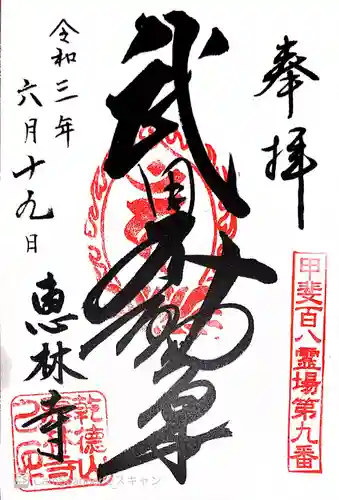 奉拝
甲斐百八霊場第九番
武田不動尊
令和三年
六月十九日
恵林寺
乾徳山